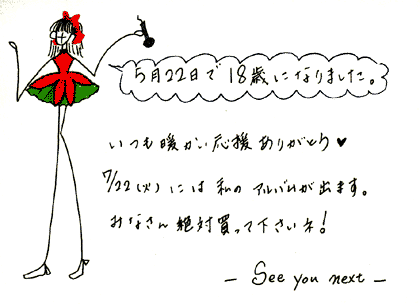 5月22日で18歳になりました。
いつも暖かい応援ありがとう♥
7/22(火)には私のアルバムが出ます。
みなさん絶対買って下さいネ!
– See you next –